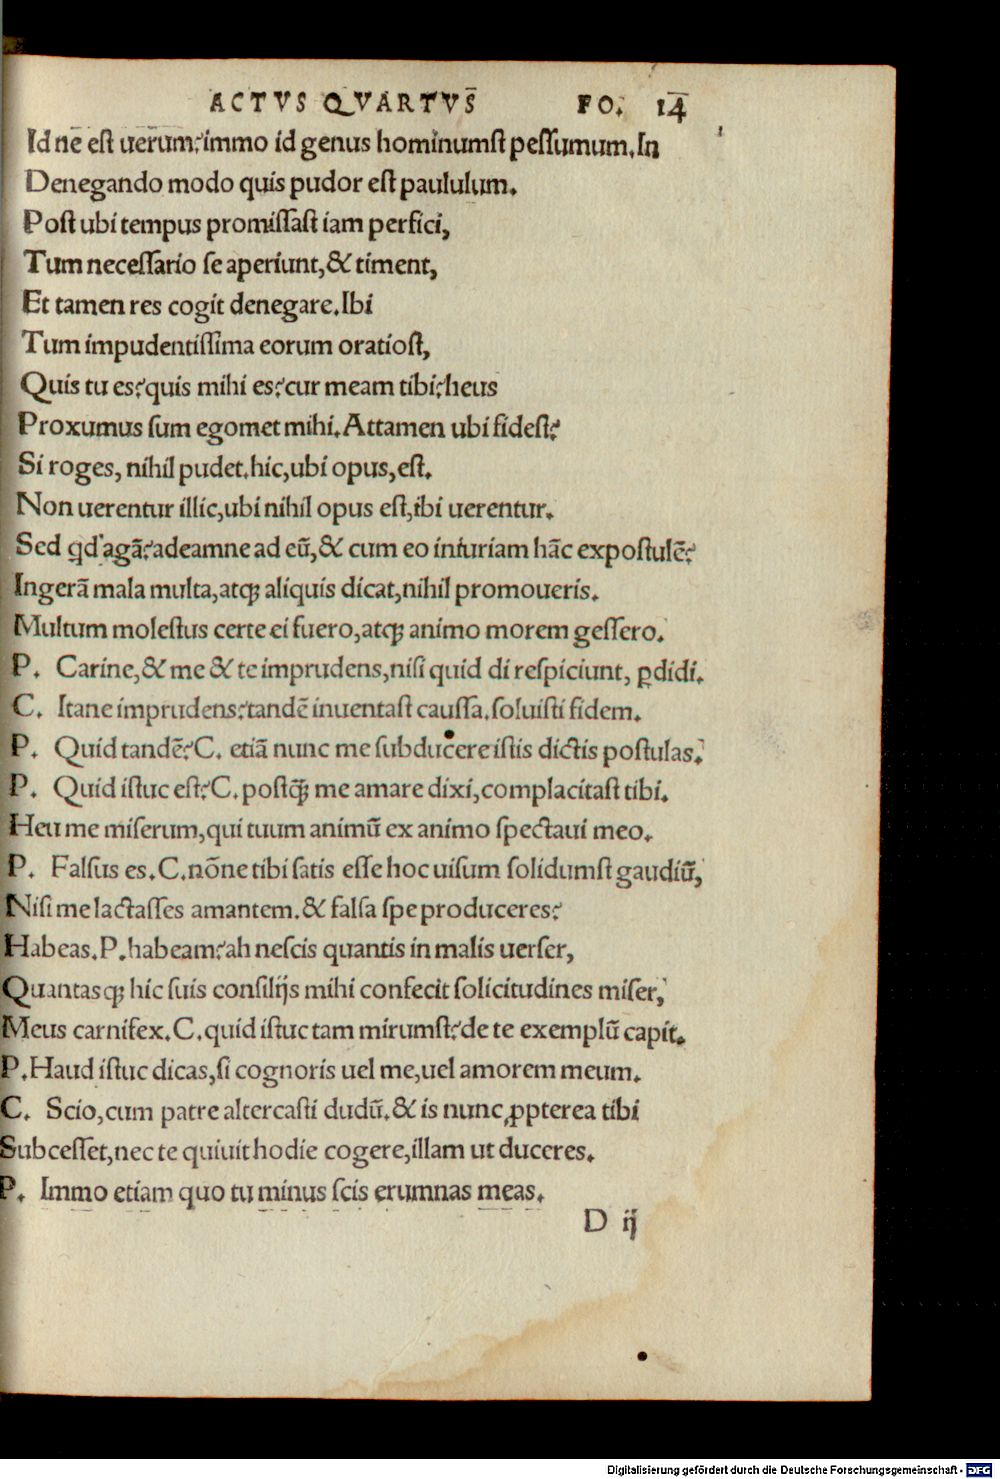 ACTVS QVARTVS̄ FO. 14
Id nē est uerum? immo id genus hominumst pessumum. In
Denegando modo quis pudor est paululum.
Post ubi tempus promissast iam perfici,
Tum necessario se aperiunt, & timent,
Et tamen res cogit denegare. Ibi
Tum impudentissima eorum oratiost,
Quis tu es? quis mihi es? cur meam tibi? heus
Proxumus sum egomet mihi. Attamen ubi fidest?
Si roges, nihil pudet. hic, ubi opus, est.
Non uerentur illic, ubi nihil opus est, ibi uerentur.
Sed qd' agā? adeamne ad eū, & cum eo iniuriam hāc expostulē?
Ingerā mala multa, atqꝫ aliquis dicat, nihil promoueris.
Multum molestus certe ei fuero, atqꝫ animo morem gessero.
P. Carine, & me & te imprudens, nisi quid di respiciunt, ꝑdidi.
C. Itane imprudens? tandē inuentast caussa. soluisti fidem.
P. Quid tandē? C. etiā nunc me subducere istis dictis postulas.
P. Quid istuc est? C. postqꝫ̄ me amare dixi, complacitast tibi.
Heu me miserum, qui tuum animū ex animo spectaui meo.
P. Falsus es. C. nōne tibi satis esse hoc uisum solidumst gaudiū,
Nisi me lactasses amantem. & falsa spe produceres?
Habeas. P. habeam? ah nescis quantis in malis uerser,
Quantasqꝫ hic suis consilijs mihi confecit solicitudines miser,
Meus carnifex. C. quid istuc tam mirumst? de te exemplū capit.
P. Haud istuc dicas, si cognoris uel me, uel amorem meum.
C. Scio, cum patre altercasti dudū. & is nunc ꝓpterea tibi
Subcesset, nec te quiuit hodie cogere, illam ut duceres.
P. Immo etiam quo tu minus scis erumnas meas.
D ij
Digitalisierung gefördert durch die Deutsche Forschungsgemeinschaft - DFG